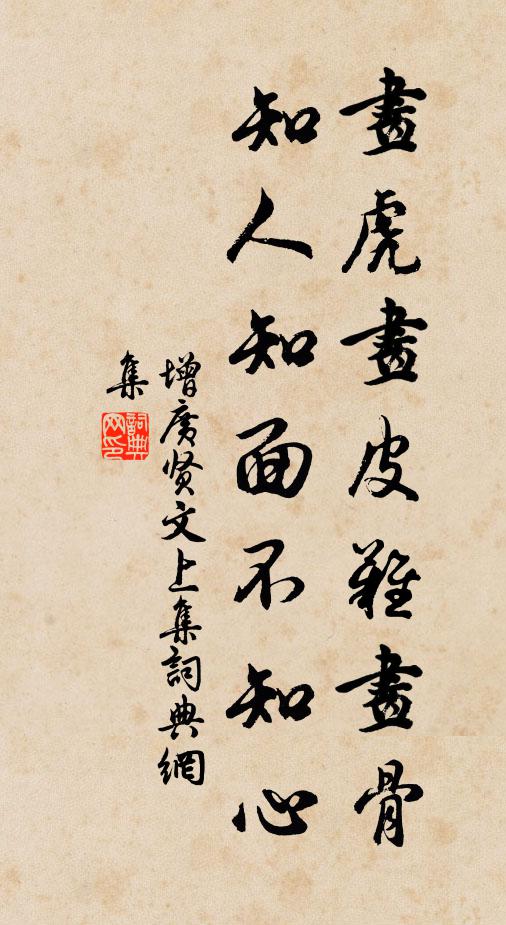 畫虎畫皮難畫骨
知人知面不知心
增廣贤文上集詞典網
集
詞典
网印